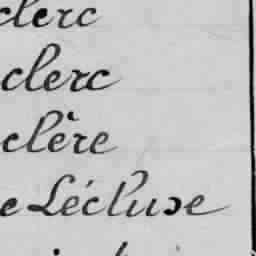 clerc
clerc
clère
e Lécluse